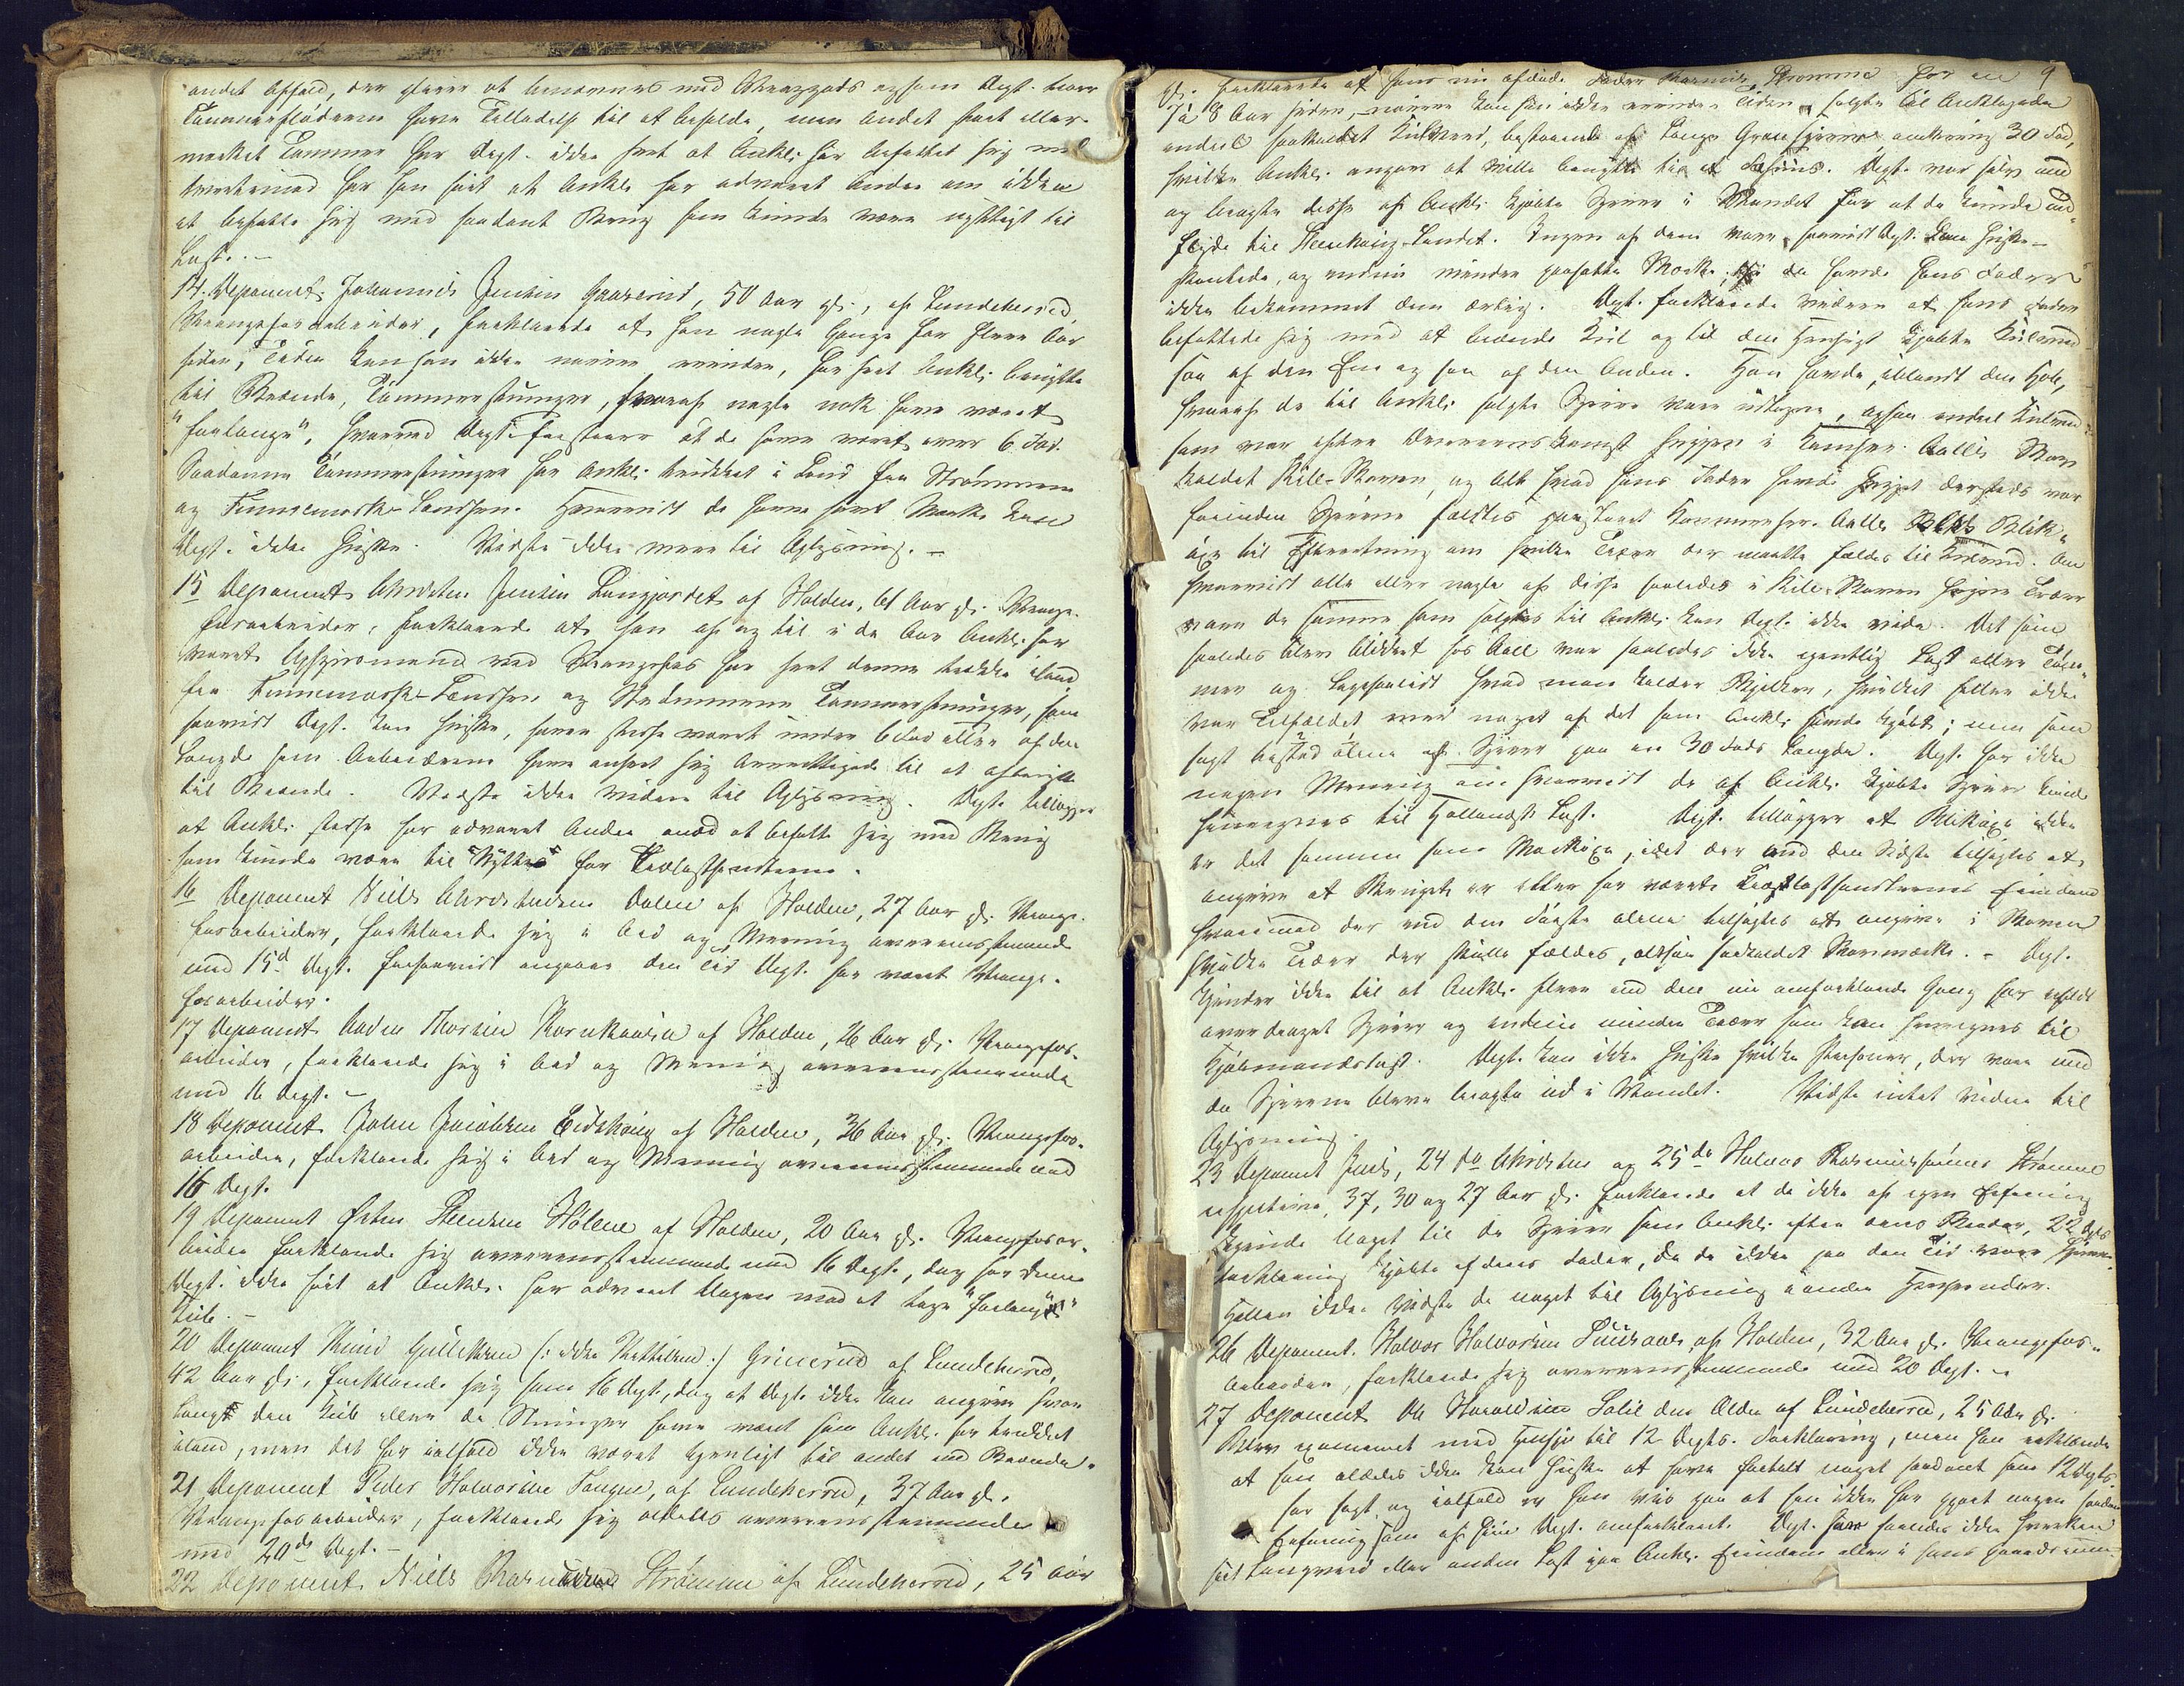 andet Affald, der pleier at benævnes med Vraggods og som Dept. troer
Tømmerfløderne have Tilladelse til at beholde, men andet stort eller
mærket Tømmer har Dept. ikke seet at Ankl. har befattet sig med
tvertimod har han hørt at Ankl. har advaret Andre om ikke
at befatte sig med saadant Brug som kunde være nyttigt til
Last. –
14. Deponent Johannes Jensen Gaaserud, 50 Aar gl., af Lundeherred
Vrangfosarbeider, forklarede at han nogle Gange for flere Aar
siden, Tiden kan han ikke nøiere erindre, har seet Ankl. benytte
til Brænde, Tømmerstumper, hvoraf nogle nok have været
"forlange", hvorved Dept. forstaaer at de have været over 6 Fod.
Saadanne Tømmerstumper har Ankl. trukket i Land fra Strømmen
og Finnemarks-Landsen. Hvorvidt de havde havt Mærke kan
Dept. ikke huske. Vidste ikke mere til Oplysning. –
15 Deponent Christen Jensen Langjordet af Holden, 61 Aar gl. Vrang-
fosarbeider, forklarede at han af og til i de Aar Ankl. har
været Opsynsmand ved Vrangfos har seet denne trække iland
fra Finnemarks-Landsen og Strømmene Tømmerstumper, som
saavidt Dept. kan huske, have disse været under 6 Fod eller af den
Længde som Arbeiderne have anseet sig berettigede til at afbenytte
til Brænde. Vidste ikke videre til Oplysning. Dept. tillægger
at Ankl. stedse har advaret Andre mod at befatte sig med Brug
som kunde være til "Nytte" for Trælasthandlerne.
16 Deponent Niels Christensen Dalen af Holden, 27 Aar gl. Vrang-
fosarbeider, forklarede sig i Ord og Mening overeensstemmende
med 15d Dept. forsaavidt angaaer den Tid Dept. har været Vrang-
fosarbeider.
17 Deponent Anders Thorsen Kornkaasen af Holden, 26 Aar gl. Vrangfos-
arbeider, forklarede sig i Ord og Mening overeensstemmende
med 16 Dept. –
18 Deponent John Jacobsen Eidskoug af Holden, 36 Aar gl. Vrangfos-
arbeider, forklarede sig i Ord og Mening overeensstemmende med
16 Dept.
19 Deponent Peter Steensen Hølene af Holden, 20 Aar gl. Vrangfosar-
beider forklarede sig overeensstemmende med 16 Dept., dog har denne
Dept. ikke hørt at Ankl. har advaret Nogen mod at tage "forlang"
Kub. –
20 Deponent Knud Gulliksen (: ikke Kittilsen :) Grinerud af Lundeherred,
42 Aar gl., forklarede sig som 16 Dept., dog at Dept. ikke kan angive hvor
lang den Kub eller de Stumper have været som Ankl. har trukket
iland, men det har ialfald ikke været tjenligt til andet end Brænde.
21 Deponent Peder Halvorsen Tangen, af Lundeherred, 37 Aar gl.
Vrangfosarbeider, forklarede sig aldeles overeensstemmende
med 20de Dept. –
22 Deponent Niels Rasmussen Strømme af Lundeherred, 25 Aar
9
gl. forklarede at hans nu afdøde Fader Rasmus Strømme for en
7 à 8 Aar siden, nøiere kan han ikke erindre Tiden, solgte til Anklagede
endeel saakaldet Kulved, bestaaende af lange Granspirer, omkring 30 Fod,
hvilke Ankl. angav at ville benytte til et Huus. Dept. var selv med
og bragte disse af Ankl. kjøbte Spirer i Vandet for at de kunde ud-
fløde til Steenkaug-Landet. Ingen af dem vare, saavidt Dept. kan huske
stemplede, og endnu mindre paasatte Mærke, da havde hans Fader
ikke bekommet dem ærlig. Dept. forklarede videre at hans Fader
befattede sig med at brænde Kul og til den Hensigt kjøbte Kulved
saa af den Ene og saa af den Anden. Han havde, iblandt den Hob,
hvoraf de til Ankl. solgte Spirer vare udtagne, ogsaa endeel Kulved
som var efter Overeenskomst hugget i Kammerh. Aalls Skov
kaldet Kile-Skoven, og Alt hvad hans Fader havde hugget dersteds var
forinden Spirerne fældtes paastaaet Kammerher. Aalls Blik-
øxe til Efterretning om hvilke Træer der maatte fældes til Kulved. Om
hvorvidt alle eller nogle af disse saaledes i Kile-Skoven hugne Træer
vare de samme som solgtes til Ankl. kan Dept. ikke vide. Det som
saaledes blev blikket hos Aall var saaledes ikke egentlig Last eller Tøm-
mer og ligesaalidt hvad man kalder Bjelker, hvilket heller ikke
var Tilfældet med noget af det som Ankl. havde kjøbt; men som
sagt bestod alene af Spirer paa en 30 Fods Længde. Dept. har ikke
nogen Mening om hvorvidt de af Ankl. kjøbte Spirer kunde
henregnes til Hollandsk Last. Dept. tillægger at Blikøxe ikke
er det samme som Mærkøxe, idet der med den Sidste tilsigtes at
angive at Bruget er eller har været Trælasthandlerens Eiendom
hvorimod der med den Første alene tilsigtes at angive i Skoven
hvilke Træer der skulle fældes, altsaa saakaldet Skovmærke. – Dept.
kjender ikke til at Ankl. flere end den nu omforklarede Gang har erholdt
overdraget Spirer og endnu mindre Træer som kan henregnes til
Kjøbmandslast. Dept. kan ikke huske hvilke Personer, der vare med
da Spirerne bleve bragte ud i Vandet. Vidste intet videre til
Oplysning.
23 Deponent Jens, 24 do Christen og 25 do Halvor Rasmussønner Strømme
respective, 37, 30 og 27 Aar gl. forklarede at de ikke af egen Erfaring
kjende Noget til de Spirer som Ankl. efter deres Broder, 22 Depts
Forklaring kjøbte af deres Fader, da de ikke paa den Tid vare hjemme.
Heller ikke vidste de noget til Oplysning i andre Henseender.
26 Deponent. Halvor Halvorsen Puusaas, af Holden, 32 Aar gl. Vrangfos-
arbeider, forklarede sig overeensstemmende med 20 Dept. –
27 Deponent Ole Haraldsen Solie den Ældre af Lundeherred, 25 Aar gl.
Blev examineret med Hensyn til 12 Depts. Forklaring, men han erklærede
at han aldeles ikke kan huske at have fortalt noget saadant som 12 Dept.
har sagt og ialfald er han vis paa at han ikke har gjort nogen saadan
Erfaring som af hiin Dept. omforklaret. Dept. har saaledes ikke hverken
seet Langved eller anden Last paa Ankl. Eiendom eller i hans Gaardsrum